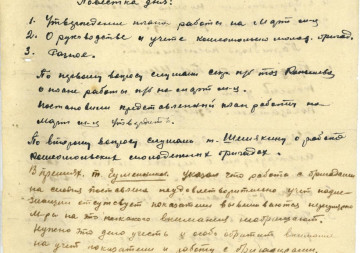 Повестка дня:
1. Утверждение плана работы на март м-ц
2. О руководстве и учете комсомольско молод. бригад.
3. Разное.
По первому вопросу слушали секр п/о тов
о плане работы п/о на март м-ц.
Постановили представленный план работы на
март м-ц Утвердить.
По второму вопросу слушали т. Шемякину о работе
комсомольских молодежных бригадах.
В прениях, т. указал что работа с бригадами
на сменах поставлена неудовлетворительно учет
отсутсвует показатели вывешиваются
на это никакого внимания необращают.
Нужно это дело учесть и особо обратить внимание
на учет показатели и работу с бригадирами.